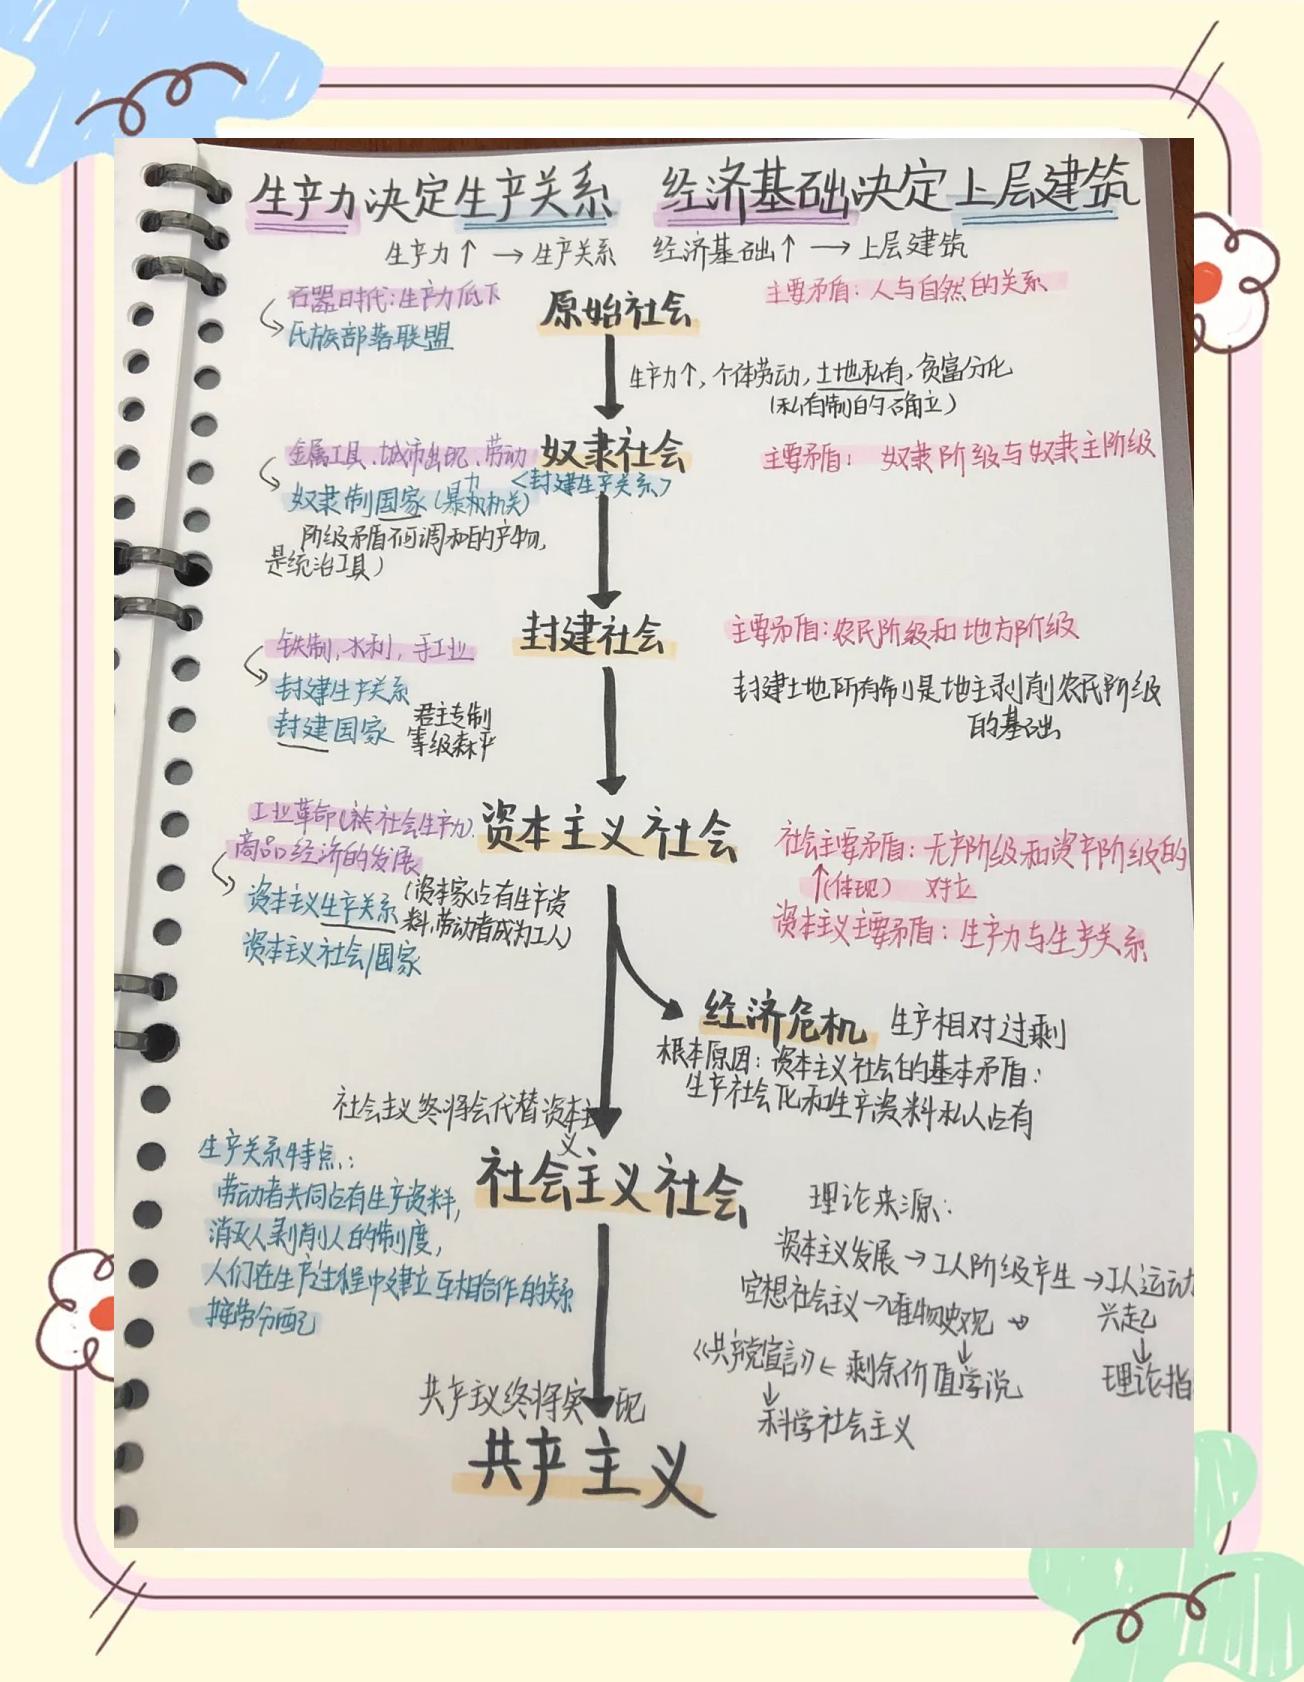 生产力决定生产关系 经济基础决定上层建筑
生产力↑ → 生产关系 经济基础↑ → 上层建筑
石器时代:生产力低下
氏族部落联盟
原始社会
主要矛盾:人与自然的关系
生产力↑,个体劳动,土地私有,贫富分化
(私有制的确立)
金属工具、城市出现、劳动
奴隶社会
主要矛盾: 奴隶阶级与奴隶主阶级
<封建生产关系>
奴隶制国家(暴力机关)
阶级矛盾不可调和的产物,
是统治工具)
封建社会
主要矛盾:农民阶级和地方阶级
铁制,水利,手工业
封建生产关系
封建国家 君主专制
等级森严
封建土地所有制是地主剥削农民阶级
的基础
工业革命(社会生产力)
商品经济的发展
资本主义社会
社会主要矛盾:无产阶级和资产阶级的
↑(体现) 对立
资本主义主要矛盾:生产力与生产关系
资本主义生产关系(资本家占有生产资
料,劳动者成为工人)
资本主义社会/国家
经济危机 生产相对过剩
根本原因:资本主义社会的基本矛盾:
生产社会化和生产资料私人占有
社会主义终将会代替资本主
义
社会主义社会
生产关系特点:
劳动者共同占有生产资料,
消灭人剥削人的制度,
人们在生产过程中建立互相合作的关系
按劳分配
理论来源:
资本主义发展→工人阶级产生→工人运动
兴起
空想社会主义→唯物史观
《共产党宣言》← 剩余价值学说
理论指
科学社会主义
共产主义终将实现
共产主义